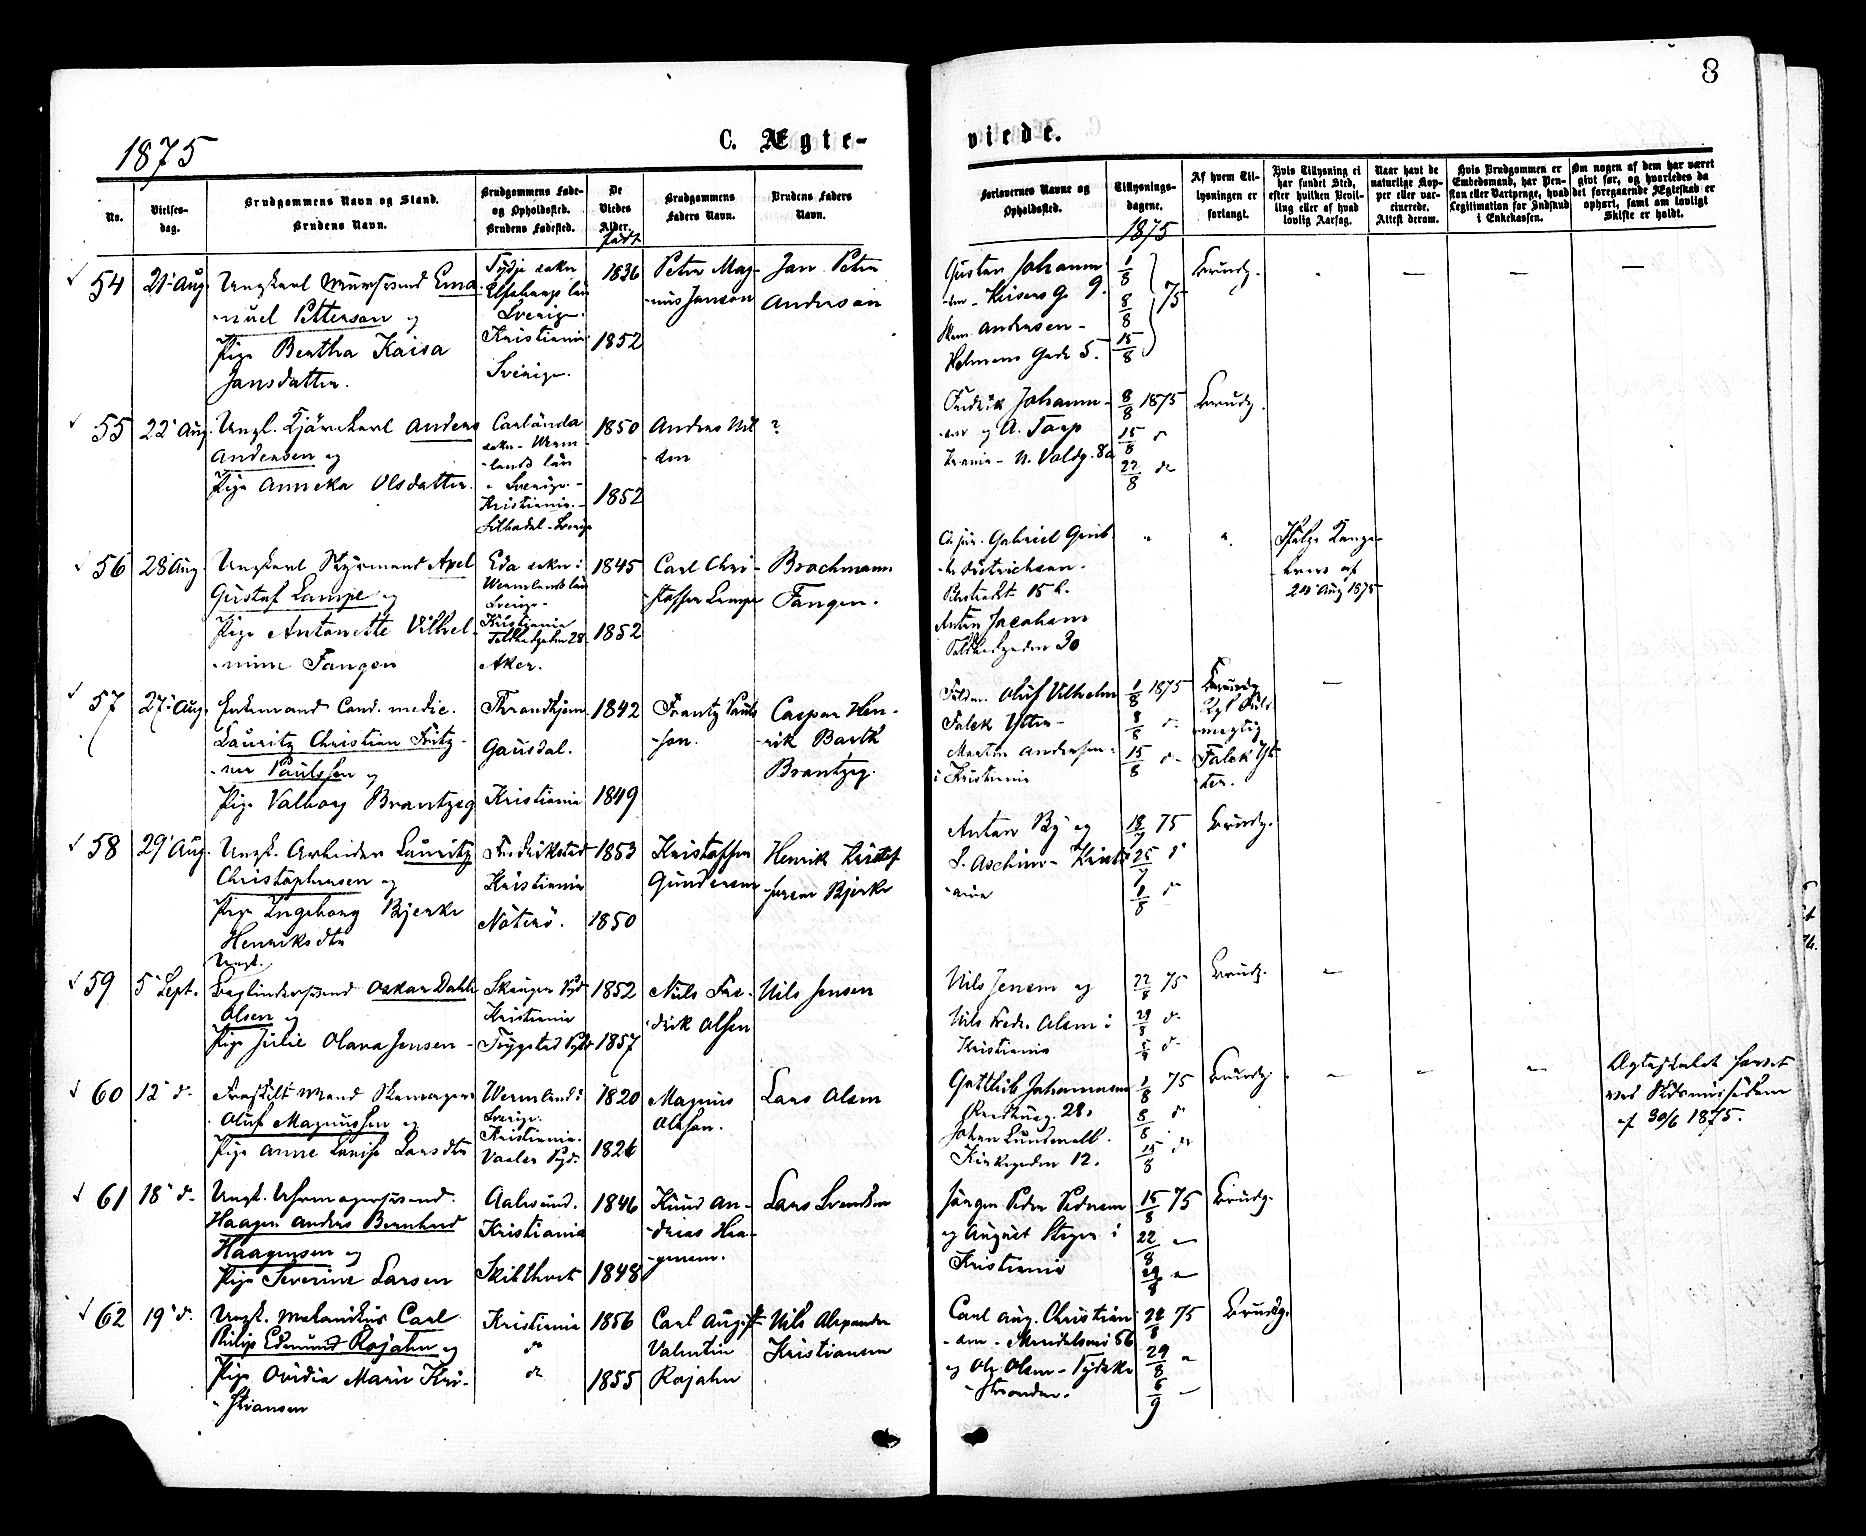 8
1875
C. Ægte-
viede.
No.
Vielses-
dag.
Brudgommens Navn og Stand.
Brudens Navn.
Brudgommens Føde-
og Opholdssted.
Brudens Fødested.
De
Viedes
Alder.
født
Brudgommens
Faders Navn.
Brudens Faders
Navn.
Forlovernes Navne og
Opholdssted.
Tillysnings-
dagene.
1875
Af hvem Til-
lysningen er
forlangt.
Hvis Tillysning ei
har fundet Sted,
efter hvilken Bevil-
ling eller af hvad
lovlig Aarsag.
Naar havt de
naturlige Kop-
per eller vac-
cinerede.
Attest derom.
Hvis Brudgommen er
Embedsmand, har Pen-
sion eller Vartpenge, hvad
Legitimation for Indskud
i Enkekassen.
Om nogen af dem har været
gift før, og hvorledes da
det foregaaende Ægteskab er
ophørt, samt om lovligt
Skifte er holdt.
54
21' Aug.
Ungkarl Muursvend Ema
-nuel Petterson og
Pige Bertha Kaisa
Jansdatter.
Elfsborgs län
Sverige.
Kristiania
Sverige.
1836
1852
Petter Mag-
-nus Janson
Jan Petter
Anderson
Gustav Johann
-sen
Andersen -
Holmens Gade 5.
1/8
8/8
15/8
75
Brudg.
55
22' Aug.
Ungk. Anders
Andersen og
Pige Anneka Olsdatter.
sokn - Werm-
-lands län
i Sverige. -
Kristiania. -
Sillbodal - Sverige
1850
1852
Anders Nil
-sen
?
Fredrik Johann-
-sen og A. Tarp
8/8 1875
15/8 d
22/8 do
Brudg.
56
28' Aug.
Ungkarl Styrmand Axel
Gustaf Lampe og
Pige Antonette Vilhel-
-mine Fangen
Eda sokn i
Wermlands län
Sverige -
Kristiania
28
Aker.
1845
1852
Carl Chri-
-stoffer Lampe
Brochmann
Fangen.
Gabriel Grib-
Didrichsen.
15 b.
Anton Jacobsen
30
Ifølge Konge-
-brev af
20' Aug 1875
57
27' Aug.
Enkemand Cand. medic.
Lauritz Christian Fritz-
-ner Paulssen og
Pige Valborg Brantzeg
Throndhjem
Gausdal.
Kristiania
1842
1849
Frantz Pauls
-sen.
Caspar Hen-
-rik Barth
Brantzeg.
Oluf Vilhelm
Falck Ytter -
Andersen
i Kristiania
1/8 1875
8/8 d
15/8 d
Brudg.
Falck Yt-
ter.
58
29' Aug.
Ungk. Arbeider Lauritz
Christophersen og
Pige Ingeborg Bjerke
Henriksdtr
Fredrikstad
Kristiania
Nøterø.
1853
1850
Kristoffer
Gundersen
Henrik Kristof
-fersen Bjerke
Anton By og
Kristi
-ania
18/7 75
25/7 d
1/8 do
Brudg.
59
5' Sept.
Ungk.
Oskar Dahl
Olsen og
Pige Julie Olava Jensen -
Kristiania
Trygstad
1852
1857
Nils Fre-
-drik Olsen
Nils Jensen
Nils Jensen og
Nils Fredr. Olsen i
Kristiania
22/8 75
29/8 d
Brudg.
60
12' d.
Fraskilt Mand Skomager
Oluf Magnussen og
Pige Anne Louise Larsdtr
Wermland i
Sverige.
Kristiania.
Vaaler
1820
1826
Magnus
Olsson.
Lars Olsen
Gottlieb Johannesen
28.
Johan
Kirkegaden 12.
1/8 75
8/8 d
15/8 do
Brudg.
Ægteskabet hævet
af 30/6 1875.
61
18' d.
Ungk. Uhrmagersvend
Haagen Anders Bernhard
Haagensen og
Pige Severine Larsen
Aalesund.
Kristiania
Skibthvet
1846
1848
Knud An-
-dreas Haa-
-gensen.
Lars Svendsen
Jørgen Peder Pedersen
og August i
Kristiania
15/8 75
22/8
29/8
Brudg.
62
19' d.
Ungk. Mekanikus Carl
Philip Edmund Rojahn og
Pige Ovidia Marie Kri-
-stiansen
Kristiania
do
do
1856
1855
Carl August
Valentin
Rojahn
Nils Alexander
Kristiansen
Carl Aug. Christian
-sen - 56
og Ole Olsen - Tydske
22/8 75
29/8
5/9
Brudg.